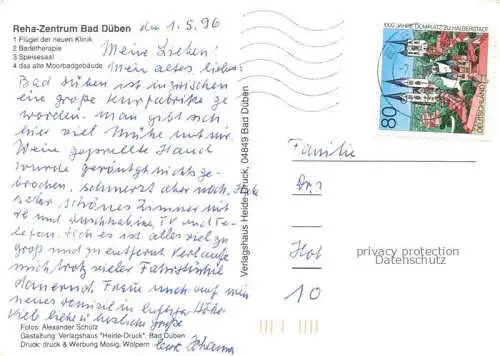 Reha-Zentrum Bad Düben
1 Flügel der neuen Klinik
2 Badetherapie
3 Speisesaal
4 das alte Moorbadgebäude
den 1.5.96
Meine Lieben!
Mein altes liebes
Bad Düben ist inzwischen
eine große Kurfabrike ge
worden. Man gibt sich
hier viel Mühe mit mir.
Meine geprellte Hand
wurde geröntgt nichts ge-
brochen. schmerzt aber noch. Habe
sehr schönes Zimmer mit
und Duschkabine, TV und Te-
lefon. es ist alles viel zu
groß und zu entfernt. Verlaufe
mich trotz vieler Fahrstühle
dauernd. Freue mich auf mein
neues Domizil in luftiger Höhe
Viele liebe u. herzliche Grüße
Eure Johanna
Fotos: Alexander Schütz
Gestaltung: Verlagshaus "Heide-Druck", Bad Düben
Druck: druck & Werbung Mosig, Wölpern
Verlagshaus Heide-Druck, 04849 Bad Düben
1000 JAHRE DOMPLATZ ZU HALBERSTADT
80
DEUTSCHLAND
Familie
Hof
10
privacy protection
Datenschutz